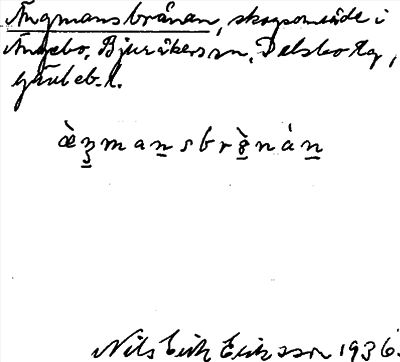 Ängmansbrånan, skogsområde i
Ängebo, Bjuråkers sn, Delsbo tg,
Gävleb. l.
æ̀ŋmansbrånán
Nils Erik Eriksson 1936.